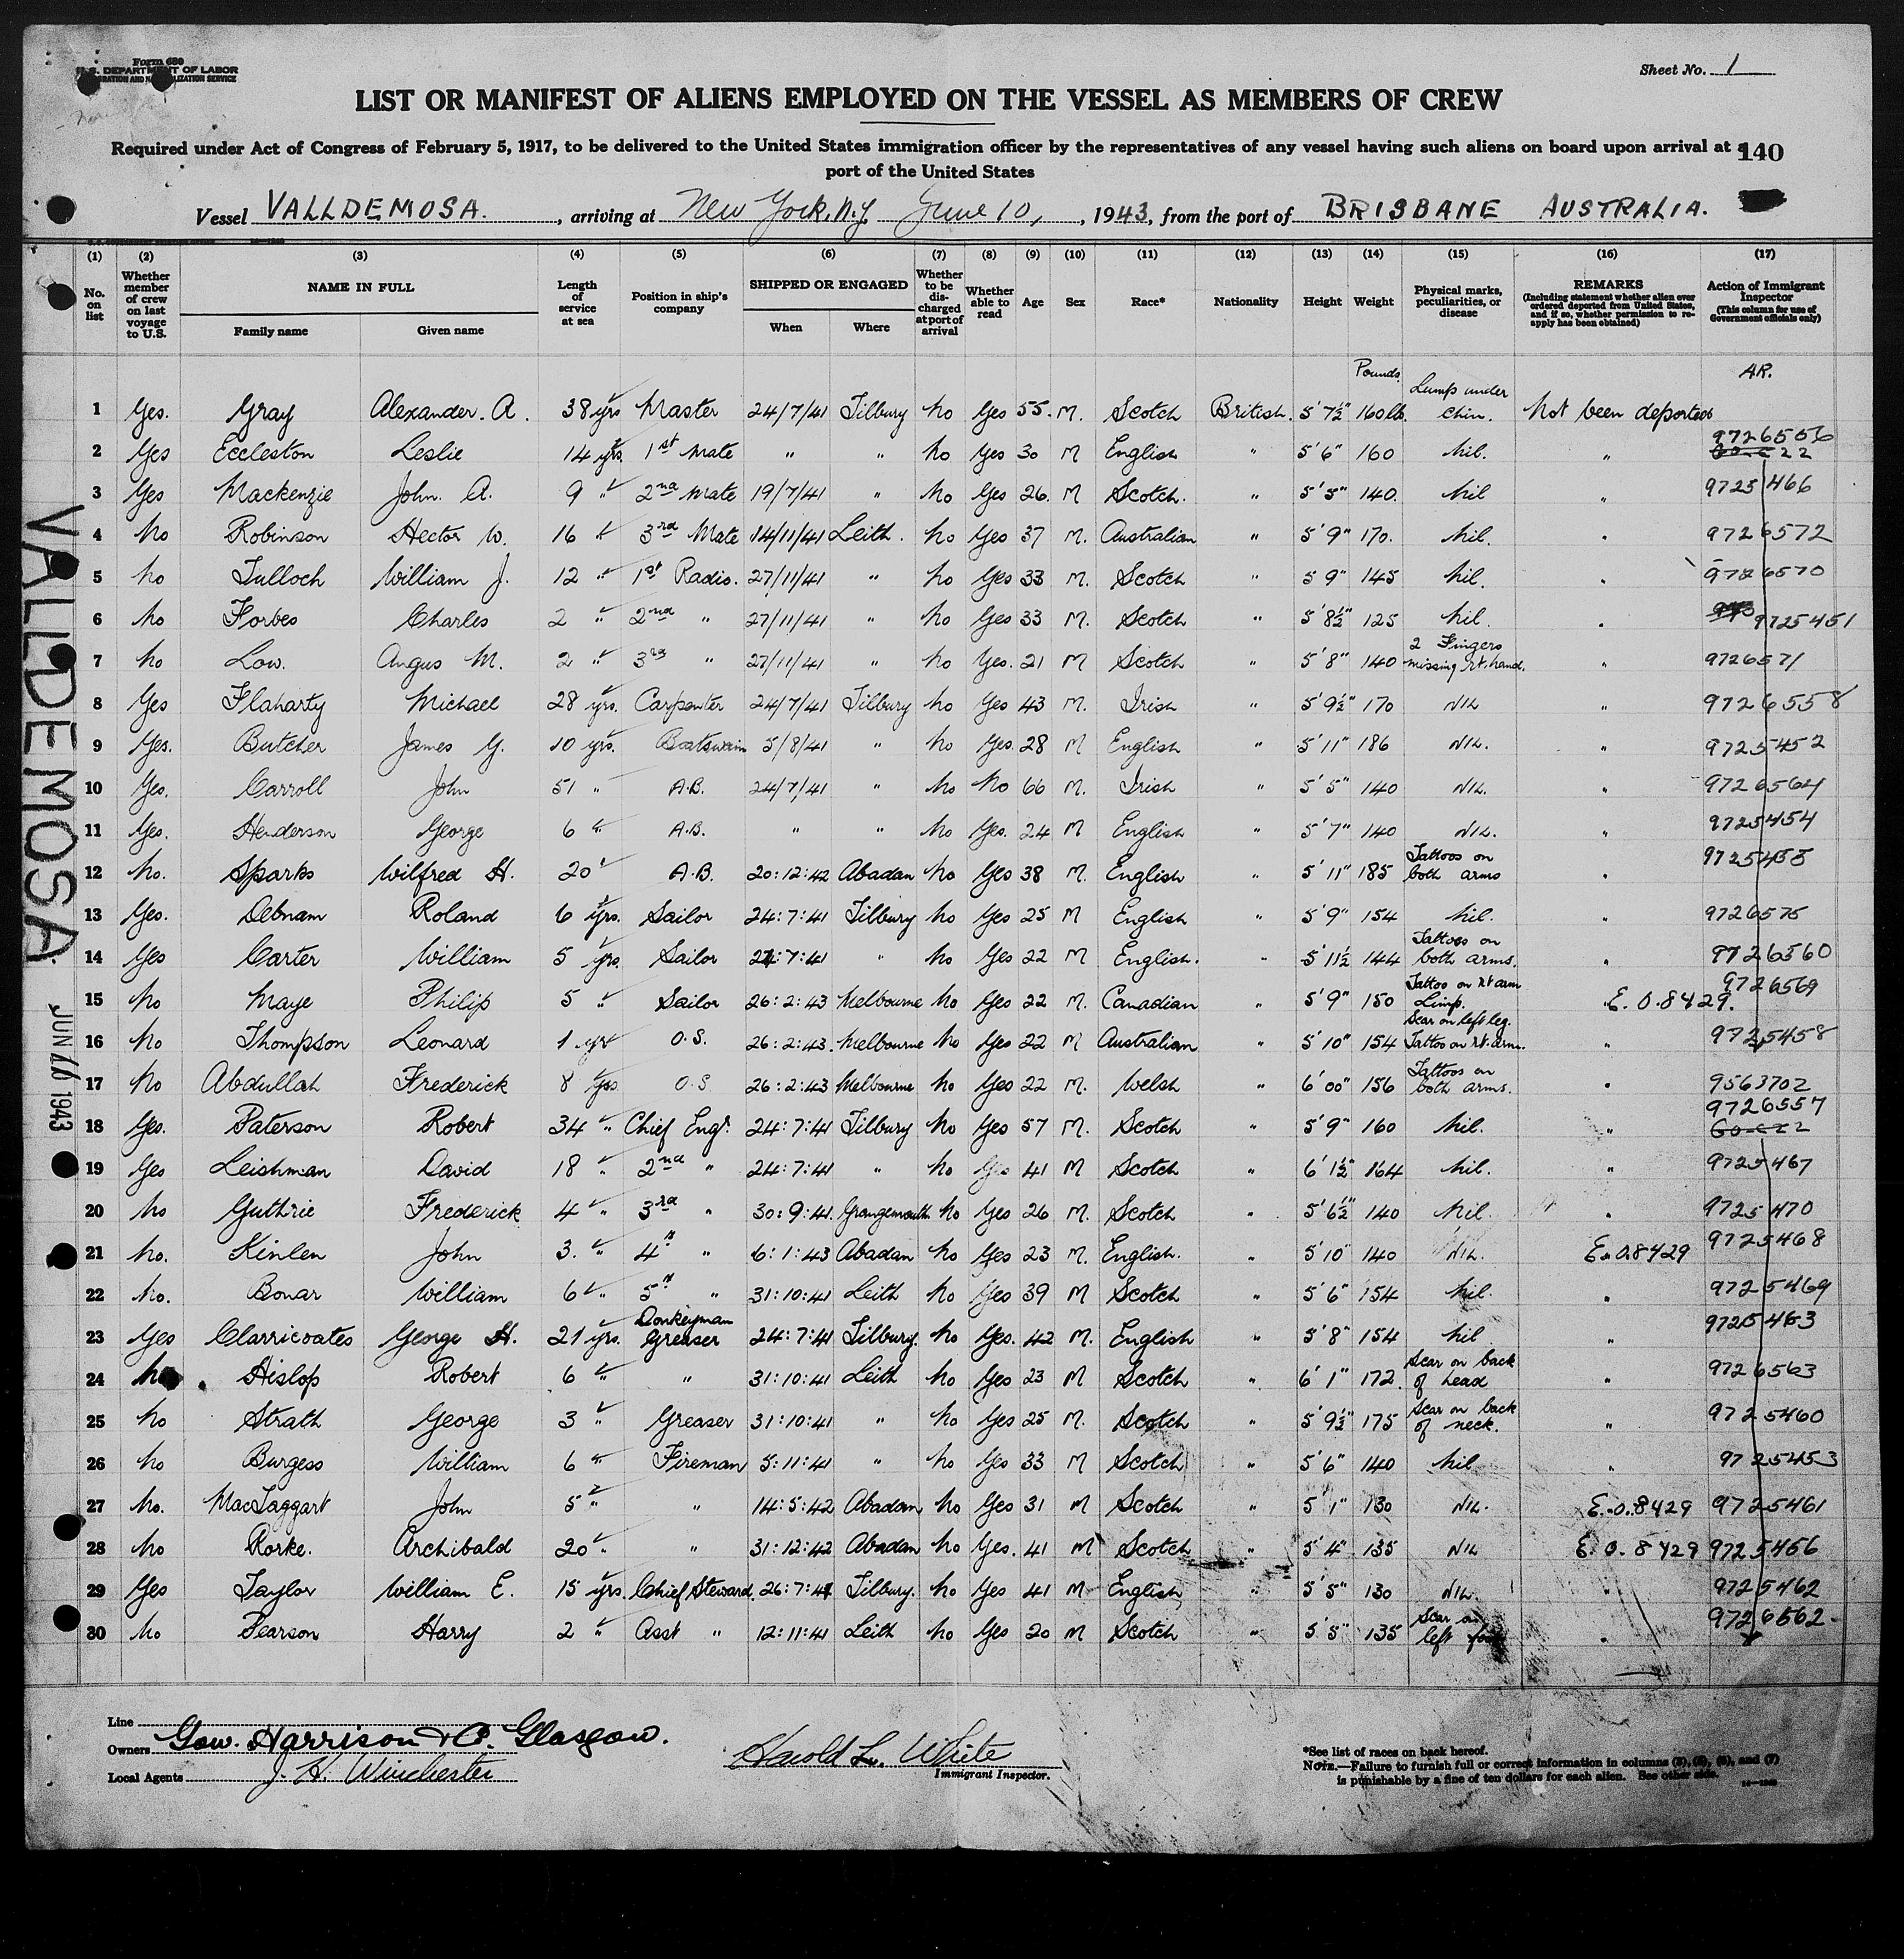 Form 680
U.S. DEPARTMENT OF LABOR
IMMIGRATION AND NATURALIZATION SERVICE
Sheet No. 1
LIST OR MANIFEST OF ALIENS EMPLOYED ON THE VESSEL AS MEMBERS OF CREW
Required under Act of Congress of February 5, 1917, to be delivered to the United States immigration officer by the representatives of any vessel having such aliens on board upon arrival at a
port of the United States
140
Vessel VALLDEMOSA., arriving at New York, N.Y. June 10, 1943, from the port of BRISBANE AUSTRALIA.
(1) (2) (3) (4) (5) (6) (7) (8) (9) (10) (11) (12) (13) (14) (15) (16) (17)
No. on list
Whether member of crew on last voyage to U.S.
NAME IN FULL
Family name Given name
Length of service at sea
Position in ship's company
SHIPPED OR ENGAGED
When Where
Whether to be discharged at port of arrival
Whether able to read
Age
Sex
Race*
Nationality
Height
Weight
Physical marks, peculiarities, or disease
REMARKS
(Including statement whether alien ever ordered deported from United States, and if so, whether permission to re-apply has been obtained)
Action of Immigrant Inspector
(This column for use of Government officials only)
Pounds. AR.
1 Yes. Gray Alexander. A. 38 yrs Master 24/7/41 Tilbury No Yes 55. M. Scotch British. 5' 7½" 160 lb. Lump under chin. Not been deported
2 Yes Eccleston Leslie 14 yrs. 1st Mate " " No Yes 30 M English " 5' 6" 160 Nil. " 9726556
3 Yes Mackenzie John. A. 9 " 2nd Mate 19/7/41 " No Yes 26. M Scotch. " 5' 5" 140. Nil " 9725466
4 No Robinson Hector W. 16 " 3rd Mate 14/11/41 Leith. No Yes 37 M. Australian " 5' 9" 170. Nil. " 9726572
5 No Tulloch William J. 12 " 1st Radio. 27/11/41 " No Yes 33 M. Scotch " 5 9" 145 Nil. " 9726570
6 No Forbes Charles 2 " 2nd " 27/11/41 " No Yes 33 M. Scotch " 5' 8½" 125 Nil. " 9725451
7 No Low. Angus M. 2 " 3rd " 27/11/41 " No Yes. 21 M Scotch " 5' 8" 140 2 Fingers missing rt. hand. " 9726571
8 Yes Flaharty Michael 28 yrs. Carpenter 24/7/41 Tilbury No Yes 43 M. Irish " 5' 9½" 170 NIL " 9726558
9 Yes. Butcher James G. 10 yrs. Boatswain 5/8/41 " No Yes. 28 M English " 5' 11" 186 NIL. " 9725452
10 Yes. Carroll John 51 " A.B. 24/7/41 " No No 66 M. Irish " 5' 5" 140 NIL. " 9726564
11 Yes. Henderson George 6 " A.B. " " No Yes. 24 M English " 5' 7" 140 NIL. " 9725454
12 No. Sparks Wilfred H. 20 A.B. 20:12:42 Abadan No Yes 38 M. English " 5' 11" 185 Tattoos on both arms "
13 Yes. Debnam Roland 6 yrs. Sailor 24:7:41 Tilbury No Yes 25 M English " 5' 9" 154 Nil. " 9726575
14 Yes Carter William 5 yrs. Sailor 24:7:41 " No Yes 22 M English. " 5' 11½ 144 Tattoos on both arms. " 9726560
15 No Maye Philip 5 " Sailor 26:2:43 Melbourne No Yes 22 M. Canadian " 5' 9" 150 Tattoo on rt arm Limp. E. O. 8429. 9726569
16 No Thompson Leonard 1 yr O.S. 26:2:43. Melbourne No Yes 22 M Australian " 5' 10" 154 Scar on left leg. Tattoo on rt. arm. " 9725458
17 No Abdullah Frederick 8 yrs O.S. 26:2:43 Melbourne No Yes 22 M. Welsh " 6' 00" 156 Tattoos on both arms. " 9563702
18 Yes. Paterson Robert 34 " Chief Engr. 24:7:41 Tilbury No Yes 57 M. Scotch " 5' 9" 160 Nil. " 9726557
19 Yes Leishman David 18 " 2nd " 24:7:41 " No Yes 41 M Scotch " 6' 1½" 164 Nil. " 9725467
20 No Guthrie Frederick 4 " 3rd " 30:9:41. Grangemouth No Yes 26 M. Scotch " 5' 6½" 140 Nil. " 9725470
21 No. Kinlen John 3. " 4th " 6:1:43 Abadan No Yes 23 M. English. " 5' 10" 140 NIL. E.O.8429 9725468
22 No. Bonar William 6 " 5th " 31:10:41 Leith No Yes 39 M Scotch " 5' 6" 154 Nil. " 9725469
23 Yes Clarricoates George H. 21 yrs. Donkeyman Greaser 24:7:41 Tilbury. No Yes. 42 M. English " 5' 8" 154 Nil " 9725463
24 No Hislop Robert 6 " " 31:10:41 Leith No Yes 23 M Scotch " 6' 1" 172. Scar on back of head " 9726563
25 No Strath George 3 " Greaser 31:10:41 " No Yes 25 M. Scotch " 5' 9½" 175 Scar on back of neck. " 9725460
26 No Burgess William 6 " Fireman 5:11:41 " No Yes 33 M Scotch " 5' 6" 140 Nil " 9725453
27 No. MacTaggart John 5 " " 14:5:42 Abadan No Yes 31 M Scotch " 5' 1" 130 NIL. E.O.8429 9725461
28 No Rorke. Archibald 20 " " 31:12:42 Abadan No Yes. 41 M Scotch " 5' 4" 135 NIL E. O. 8429 9725456
29 Yes Taylor William E. 15 yrs. Chief Steward. 26:7:41 Tilbury. No Yes 41 M English " 5' 5" 130 NIL. " 9725462
30 No Pearson Harry 2 " Asst " 12:11:41 Leith No Yes 20 M Scotch " 5' 5" 135 Scar on left " 9726562
VALLDEMOSA
JUN 1943
Line
Owners Gow. Harrison & Co. Glasgow.
Local Agents J. H. Winchester
Harold L. White
Immigrant Inspector.
*See list of races on back hereof.
NOTE.—Failure to furnish full or correct information in columns (3), (5), (6), and (7)
is punishable by a fine of ten dollars for each alien. See other side.